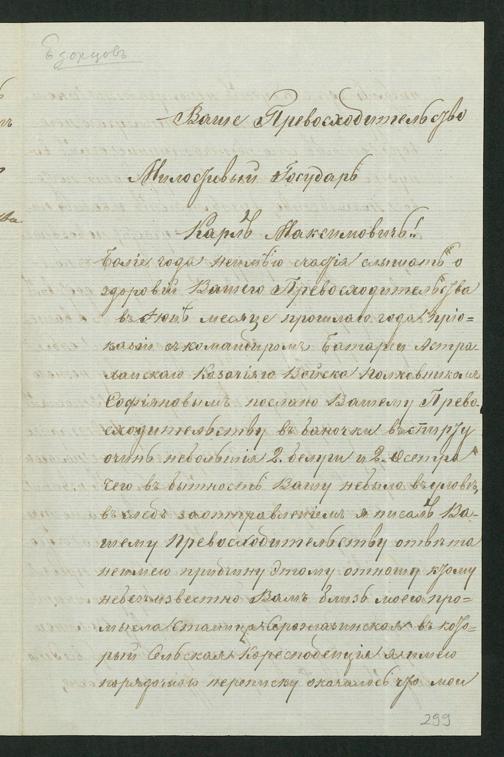 Ваше Превосходительство
Милостивый Государь
Карлъ Максимовичъ!
Боліе года неимѣю счастія слышать о
здоровіи Вашего Превосходительства
въ Іюнѣ месяце прошлаго года при
скомандиромъ Батареи Астра
ханскаго Козачіяго Войска Полковникомъ
Софіяновымъ послано Вашему Прево-
сходительству въ баночки въ спирту
очинь небольшія 2. белуги и 2. осетра
чего въ бытность Вашу небыло въ уловѣ,
въ следъ заотправленіемъ я писалъ Ва-
шему Превосходительству отвѣта
неимею причину этому отношу къ тому
небезъизвестно Вамъ близь моего про-
мысла Станица въ кото-
рый Сельская Коресподенція я имею
порядочною переписку оказалось что мои
299